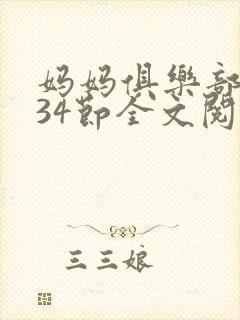 妈妈俱樂部
34節全文閱
三三娘